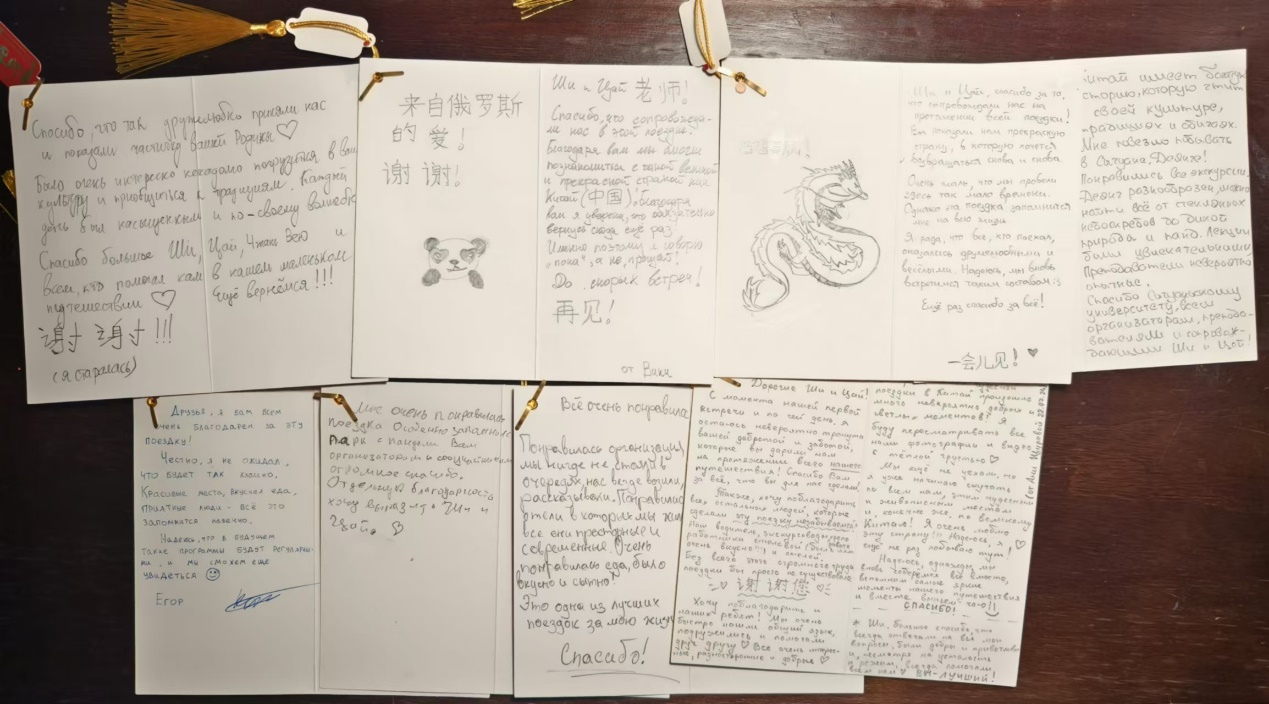 Спасибо, что так дружелюбно приняли нас
и показали частичку Вашей Родины ♡
Было очень интересно погрузиться в Вашу
культуру и приобщиться к традициям. Каждый
день был насыщенным и по-своему
Спасибо большое Ши, Цай,
всем, кто помогал нам в нашем маленьком
путешествии ♡ Ещё вернёмся!!!
谢谢!!!
(я старалась)
来自俄罗斯
的 爱!
谢 谢!
Ши и Цай 老师!
Спасибо, что сопровожда-
ли нас в этой поездке.
Благодаря вам мы смогли
познакомиться с такой великой
и прекрасной страной как
Китай (中国),
вам я уверена, что
вернусь сюда ещё раз.
Именно поэтому я говорю
"пока", а не "прощай"!
До скорых встреч!
再见!
от Вики
Ши и Цай, спасибо за то,
что сопровождали нас на
протяжении всей поездки!
Вы показали нам прекрасную
страну, в которую хочется
возвращаться снова и снова.
Очень жаль, что мы провели
здесь так мало времени.
Однако эта поездка запомнится
мне на всю жизнь.
Я рада, что все, кто поехал,
оказались дружелюбными и
весёлыми. Надеюсь, мы вновь
встретимся таким составом :з
Ещё раз спасибо за всё!
一会儿见! ♥
Китай имеет
историю, которую чтит
своей культуре,
традициях и обычаях.
Мне повезло побывать
в Сычуане, Деяне!
Понравились все экскурсии.
Деян разнообразен, можно
найти всё от стеклянных
небоскрёбов до дикой
природы и панд. Лекции
были увлекательными
Преподаватели невероятно
опытные.
Спасибо Сычуаньскому
университету, всем
организаторам, препода-
вателям и сопровож-
дающим Ши и Цай!
Друзья, я вам всем
очень благодарен за эту
поездку!
Честно, я не ожидал,
что будет так классно.
Красивые места, вкусная еда,
приятные люди - всё это
запомнится надолго.
Надеюсь, что в будущем
такие программы будут регулярны-
ми, и мы сможем ещё
увидеться ☺
Егор
Мне очень понравилась
поездка. Особенно запомнился
парк с пандами. Всем
организаторам и
огромное спасибо.
Отдельную благодарность
хочу выразить Ши и
Цай. ♡
Всё очень понравилось
Понравилась организация,
мы нигде не стояли в
очередях, нас везде возили,
рассказывали. Понравились
отели в которых мы жили
все они просторные и
современные. Очень
понравилась еда, было
вкусно и сытно!
Это одна из лучших
поездок за мою жизнь
Спасибо!
Дорогие Ши и Цай!
С момента нашей первой
встречи и по сей день, я
осталась невероятно тронута
вашей добротой и заботой,
которые вы дарили нам
на протяжении всего нашего
путешествия! Спасибо Вам
за всё, что вы для нас сделали!
Также, хочу поблагодарить
всех остальных людей, которые
сделали эту поездку незабываемой
Наш водитель, экскурсоводы,
работники столовой (было
очень вкусно!) и отелей.
Без всего этого огромного труда
поездки бы просто не существовало
♡ 谢 谢 您 ♡
Хочу поблагодарить и
наших ребят! Мы очень
быстро нашли общий язык,
подружились и помогали
друг другу ♡ Все очень
разносторонние и добрые ♡
поездки в Китай произошло
много невероятно добрых и
светлых моментов! Я
буду пересматривать все
наши фотографии и видео
с тёплой грустью ♡
Мы ещё не уехали, но
я уже начинаю скучать
по всем вам, этим чудесным
и живописным местам
и, конечно же, по великому
Китаю! Я очень люблю
эту страну!! Надеюсь, я
ещё не раз побываю тут!
Надеюсь, однажды, мы
вновь соберёмся все вместе,
вспомним самые яркие
моменты нашего путешествия
и вместе выпьем чаю!!
СПАСИБО!
* Ши, большое спасибо, что
всегда отвечали на все мои
вопросы, были добры и приветливы
и, несмотря на усталость
всегда помогали
всем нам ♡ ВЫ-ЛУЧШИЙ!